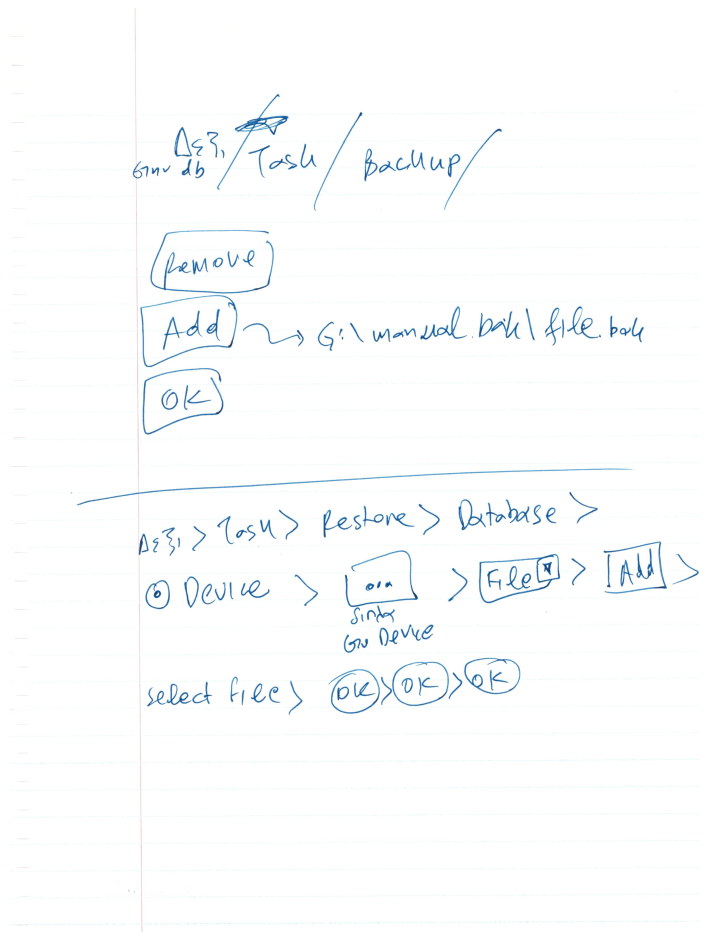 Δεξί / Task / Backup /
στην db
Remove
Add → G:\manual.bak\file.bak
OK
Δεξί > Task > Restore > Database >
Device > ... > File > Add >
δίπλα
στο Device
select file > OK > OK > OK